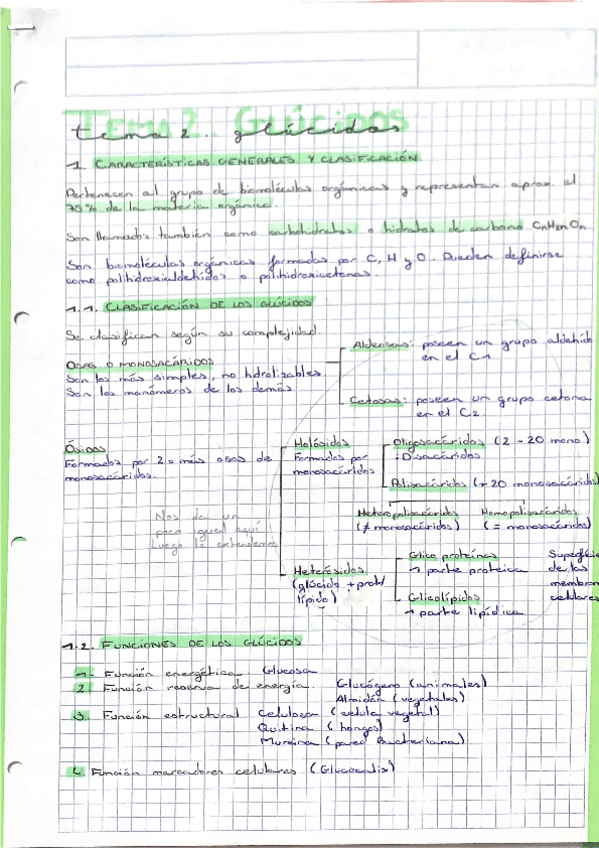 TEMA 2. GLÚCIDOS
tema 2. glúcidos
1. CARACTERÍSTICAS GENERALES Y CLASIFICACIÓN
Pertenecen al grupo de biomoléculas orgánicas y representan aprox. el
75% de la materia orgánica.
Son llamados también como carbohidratos o hidratos de carbono CnH2nOn
Son biomoléculas orgánicas formadas por C, H y O. Pueden definirse
como polihidroxialdehídos o polihidroxicetonas.
1.1. CLASIFICACIÓN DE LOS GLÚCIDOS
Se clasifican según su complejidad.
OSAS O MONOSACÁRIDOS
Son los más simples, no hidrolizables.
Son los monómeros de los demás
Aldosas: poseen un grupo aldehído
en el C1
Cetosas: poseen un grupo cetona
en el C2
Ósidos
Formados por 2 o más osas de
monosacáridos.
Holósidos
Formados por
monosacáridos
Oligosacáridos (2 - 20 mono)
: Disacáridos
Polisacáridos (+ 20 monosacáridos)
Heteropolisacáridos
(≠ monosacáridos)
Homopolisacáridos
(= monosacáridos)
Nos da un
poco igual aquí
Luego lo entendemos
Heterósidos
(glúcido + prot/
lípido)
Glicoproteínas
parte proteica
Glicolípidos
parte lipídica
Superficie
de las
membran
celulares
1.2. FUNCIONES DE LOS GLÚCIDOS
1. Función energética Glucosa
2. Función reserva de energía. Glucógeno (animales)
Almidón (vegetales)
3. Función estructural Celulosa (célula vegetal)
Quitina (hongos)
Mureína (pared Bacteriana)
4. Función marcadores celulares (Glucocalix)